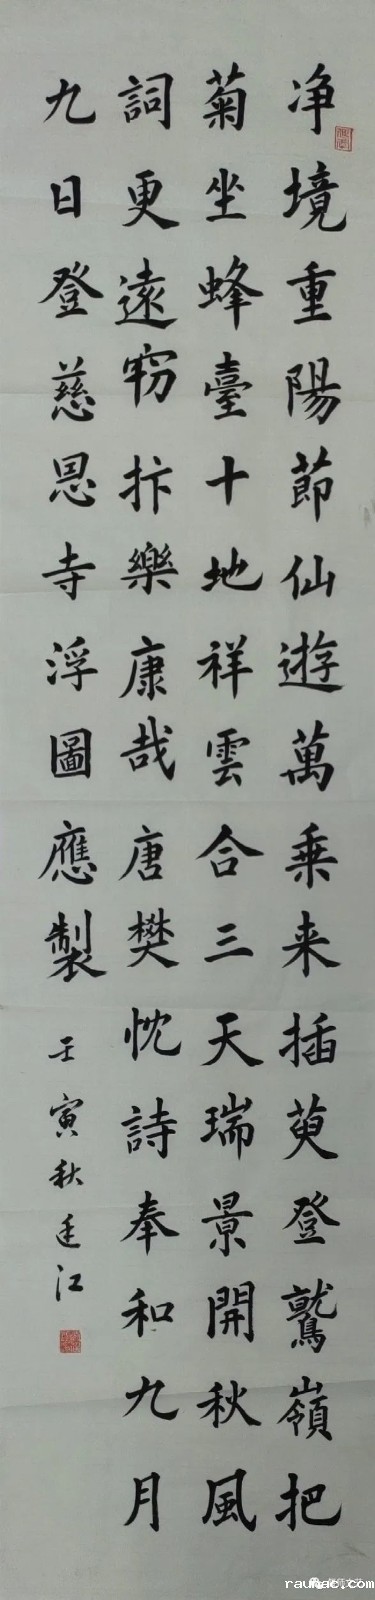 净境重陽節仙遊萬乗来插萸登鷲嶺把
菊坐蜂臺十地祥雲合三天瑞景開秋風
詞更遠窃抃樂康哉唐樊忱詩奉和九月
九日登慈恩寺浮圖應製
壬寅秋廷江
rauhac.com